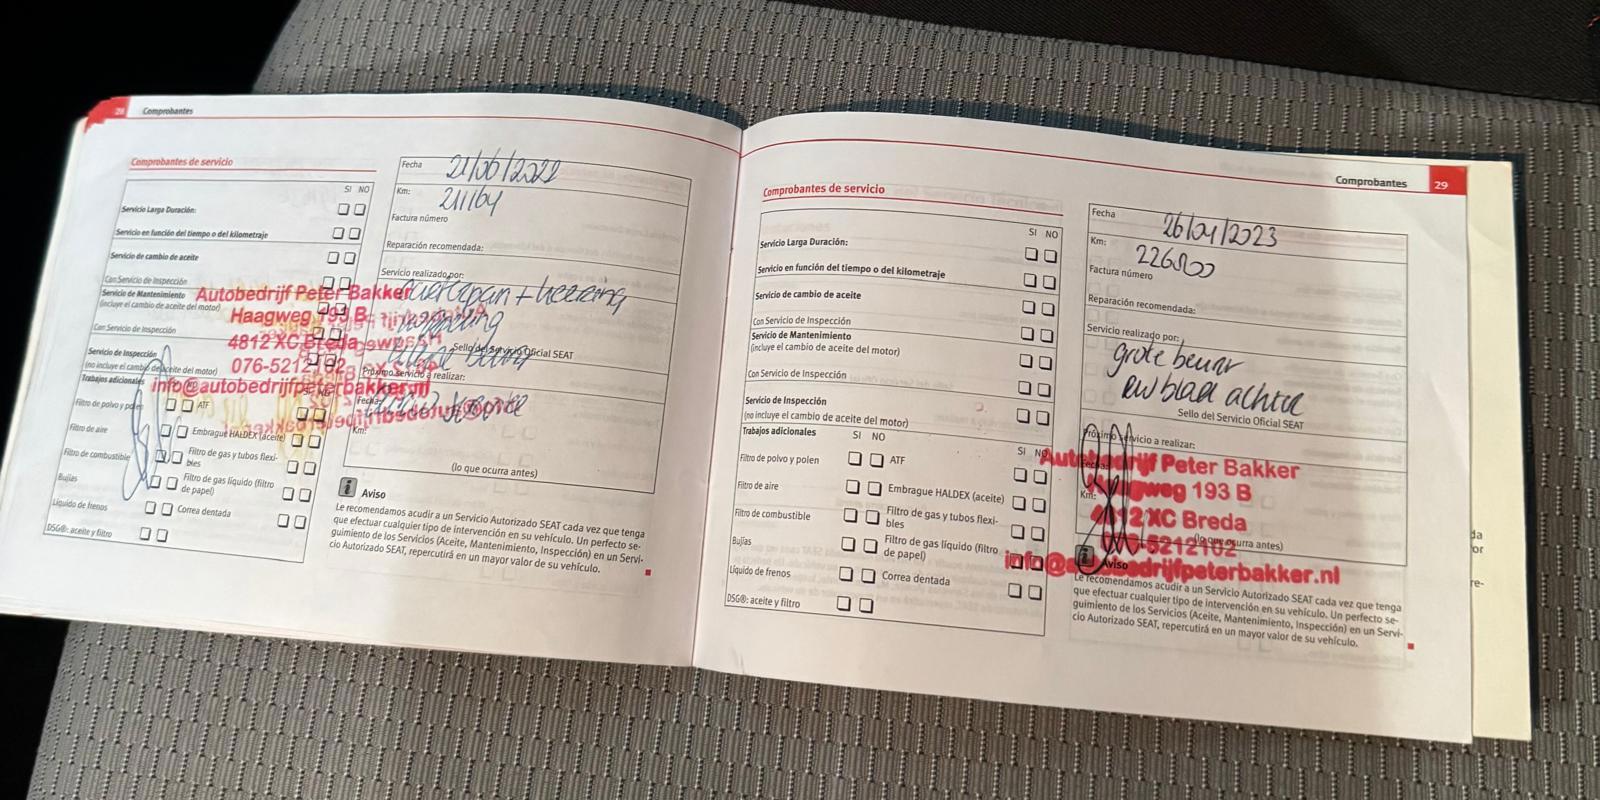 28 Comprobantes
Comprobantes de servicio
SI NO
Servicio Larga Duración:
Servicio en función del tiempo o del kilometraje
Servicio de cambio de aceite
Con Servicio de Inspección
Servicio de Mantenimiento
(incluye el cambio de aceite del motor)
Con Servicio de Inspección
Servicio de Inspección
(no incluye el cambio de aceite del motor)
Trabajos adicionales
Filtro de polvo y polen
ATF
Filtro de aire
Embrague HALDEX (aceite)
Filtro de combustible
Filtro de gas y tubos flexi-
bles
Bujías
Filtro de gas líquido (filtro
de papel)
Líquido de frenos
Correa dentada
DSG®: aceite y filtro
Autobedrijf Peter Bakker
Haagweg 193 B
4812 XC Breda
076-5212102
info@autobedrijfpeterbakker.nl
Fecha 21/06/2022
Km: 211164
Factura número
Reparación recomendada:
Servicio realizado por:
Sello del Servicio Oficial SEAT
Próximo servicio a realizar:
Fecha:
Km:
(lo que ocurra antes)
Aviso
Le recomendamos acudir a un Servicio Autorizado SEAT cada vez que tenga
que efectuar cualquier tipo de intervención en su vehículo. Un perfecto se-
guimiento de los Servicios (Aceite, Mantenimiento, Inspección) en un Servi-
cio Autorizado SEAT, repercutirá en un mayor valor de su vehículo.
Comprobantes 29
Comprobantes de servicio
SI NO
Servicio Larga Duración:
Servicio en función del tiempo o del kilometraje
Servicio de cambio de aceite
Con Servicio de Inspección
Servicio de Mantenimiento
(incluye el cambio de aceite del motor)
Con Servicio de Inspección
Servicio de Inspección
(no incluye el cambio de aceite del motor)
Trabajos adicionales
SI NO
SI NO
Filtro de polvo y polen
ATF
Filtro de aire
Embrague HALDEX (aceite)
Filtro de combustible
Filtro de gas y tubos flexi-
bles
Bujías
Filtro de gas líquido (filtro
de papel)
Líquido de frenos
Correa dentada
DSG®: aceite y filtro
Fecha 26/04/2023
Km:
Factura número
Reparación recomendada:
Servicio realizado por:
grote beurt
achter
Sello del Servicio Oficial SEAT
Próximo servicio a realizar:
Fecha:
Km:
(lo que ocurra antes)
Autobedrijf Peter Bakker
Haagweg 193 B
4812 XC Breda
076-5212102
info@autobedrijfpeterbakker.nl
Aviso
Le recomendamos acudir a un Servicio Autorizado SEAT cada vez que tenga
que efectuar cualquier tipo de intervención en su vehículo. Un perfecto se-
guimiento de los Servicios (Aceite, Mantenimiento, Inspección) en un Servi-
cio Autorizado SEAT, repercutirá en un mayor valor de su vehículo.